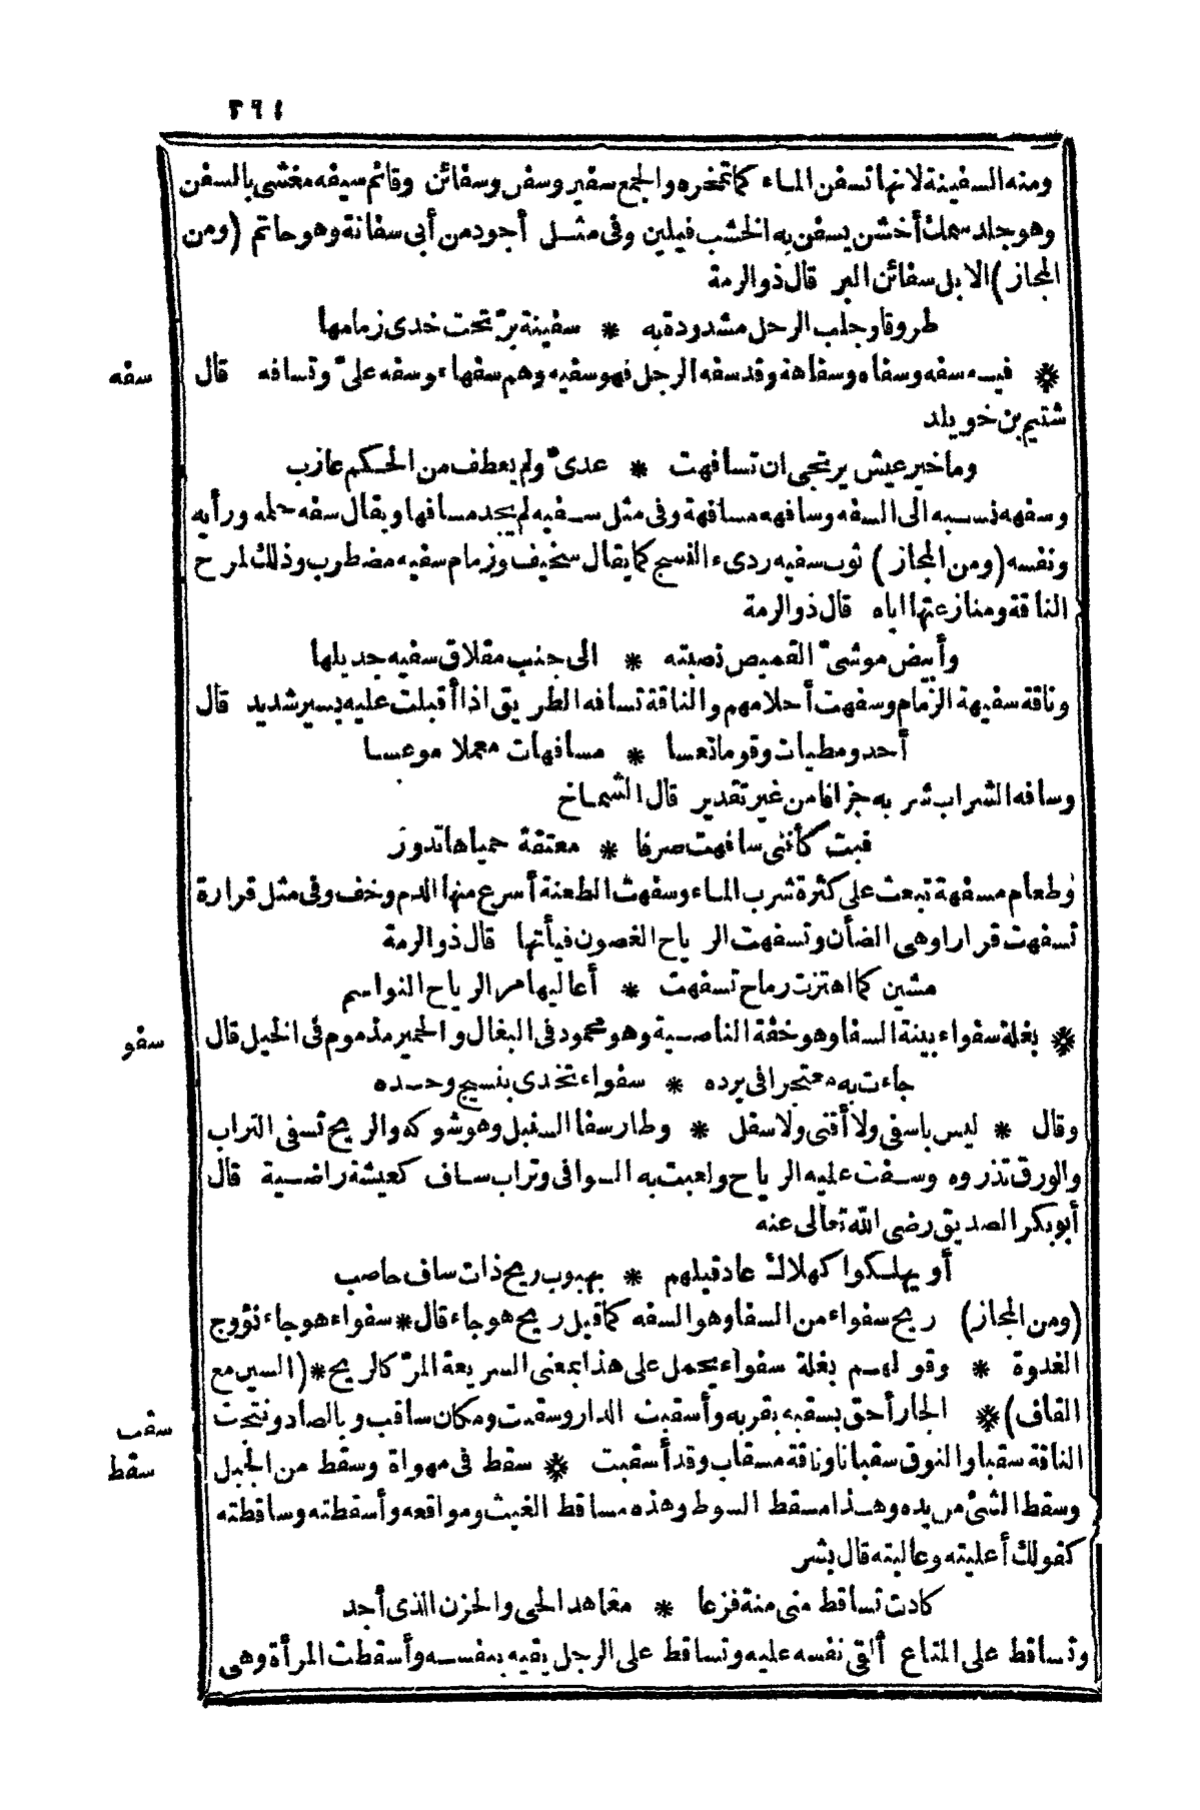 ٢٩١
ومنه السفينة لانها تسفن الماء كما تمخره والجمع سفين وسفن وسفائن وقائم سيفه مغشى بالسفن
وهو جلد سمك أخشن يسفن به الخشب فيلين وفى مثل أجود من أبى سفانة وهو حاتم (ومن
المجاز) الابل سفائن البر قال ذو الرمة
طروقا وجلب الرحل مشدودة به * سفينة برّ تحت خدى زمامها
سفه
* فيه سفه وسفاه وسفاهة وقد سفه الرجل فهو سفيه وهم سفهاء وسفه علىّ وتسافه قال
شتيم بن خويلد
وما خير عيش يرتجى ان تسافهت * عدىّ ولم يعطف من الحكم عازب
وسفهه نسبه الى السفه وسافهه مسافهة وفى مثل سفيه لم يجد مسافها ويقال سفه حلمه ورأيه
ونفسه (ومن المجاز) ثوب سفيه ردىء النسج كما يقال سخيف وزمام سفيه مضطرب وذلك لمرح
الناقة ومنازعتها اياه قال ذو الرمة
وأبيض موشىّ القميص نصبته * الى جنب مقلاق سفيه جديلها
وناقة سفيهة الزمام وسفهت أحلامهم والناقة تسافه الطريق اذا أقبلت عليه بسير شديد قال
أحدو مطيات وقوما نعسا * مسافهات معملا موعسا
وسافه الشراب شربه جزافا من غير تقدير قال الشماخ
فبت كأننى سافهت صرفا * معتقة حمياها تدور
وطعام مسفهة تبعث على كثرة شرب الماء وسفهت الطعنة أسرع منها الدم وخف وفى مثل قرارة
تسفهت قرارا وهى الضأن وتسفهت الرياح الغصون فيأتها قال ذو الرمة
مشين كما اهتزت رماح تسفهت * أعاليها مر الرياح النواسم
سفو
* بغلة سفواء بينة السفا وهو خفة الناصية وهو محمود فى البغال والحمير مذموم فى الخيل قال
جاءت به معتجرا فى برده * سفواء تخدى بنسيج وحده
وقال * ليس باسفى ولا أقنى ولا سفل * وطار سفا السنبل وهو شوكه والريح تسفى التراب
والورق تذروه وسفت عليه الرياح ولعبت به السوافى وتراب ساف كعيشة راضية قال
أبو بكر الصديق رضى الله تعالى عنه
أو يهلكوا كهلاك عاد قبلهم * بهبوب ريح ذات ساف حاصب
(ومن المجاز) ريح سفواء من السفا وهو السفه كما قيل ريح هوجاء قال * سفواء هوجاء نؤوج
الغدوة * وقولهم بغلة سفواء يحمل على هذا بمعنى السريعة المرّ كالريح * (السين مع
القاف) * الجار أحق بسقبه بقربه وأسقبت الدار وسقبت ومكان ساقب وبالصاد ونتجت
سقب
الناقة سقبا والنوق سقبانا وناقة مسقاب وقد أسقبت * سقط فى مهواة وسقط من الجبل
سقط
وسقط الشئ من يده وهذا مسقط السوط وهذه مساقط الغيث ومواقعه وأسقطته وساقطته
كقولك أعليته وعاليته قال بشر
كادت تساقط منى منة فزعا * معاهد الحى والحزن الذى أجد
وتساقط على المتاع ألقى نفسه عليه وتساقط على الرجل يقيه بنفسه وأسقطت المرأة وهى